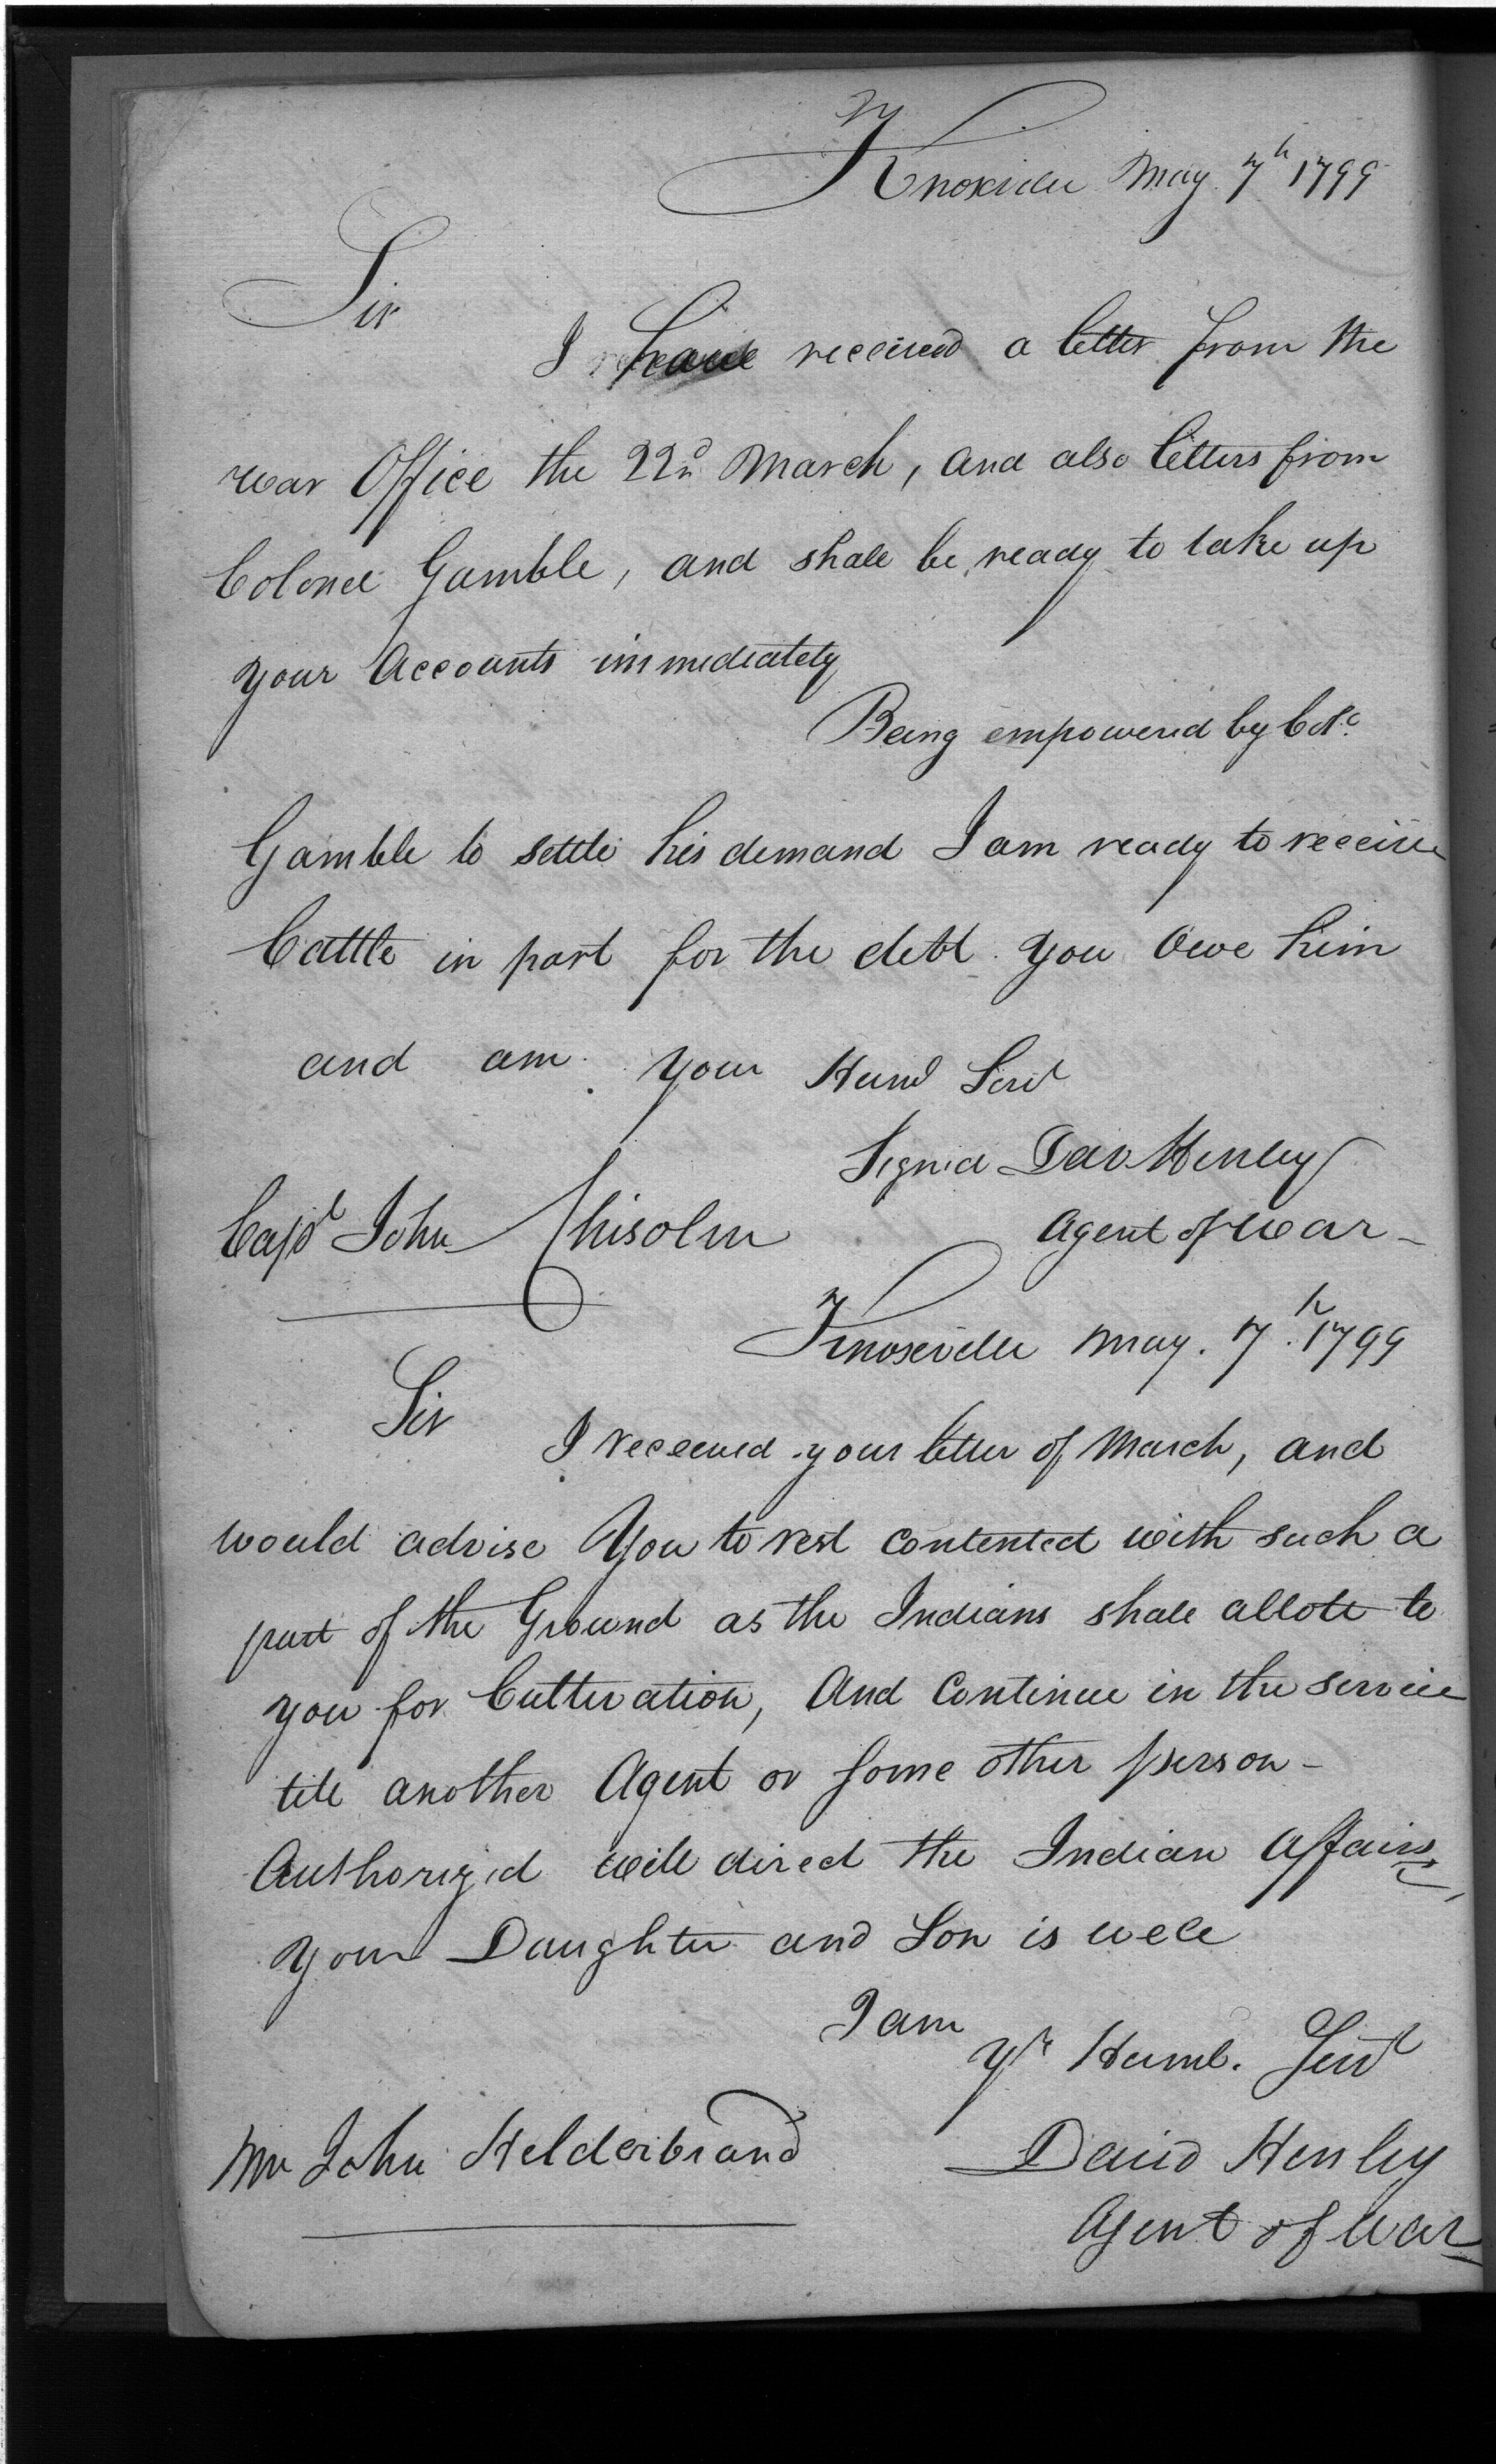 Knoxville May 7h 1799
Sir
I have received a letter from the
war Office the 22nd March, and also letters from
Colonel Gamble, and shall be ready to take up
your Accounts immediately
Being empowered by Colo.
Gamble to settle his demand I am ready to receive
Cattle in part for the debt you Owe him
and am your Huml Servt
Signed Dav Henley
Capt John Chisolm
Agent of War -
Knoxville May. 7h. 1799
Sir
I received your letter of March, and
would advise You to rest contented with such a
part of the Ground as the Indians shall allott to
you for Cultivation, And Continue in the service
till another Agent or some other person -
Authorized will direct the Indian Affairs,
your Daughter and Son is well
I am
Yr Huml. Servt
Mr John Helderbrand
David Henley
Agent of War